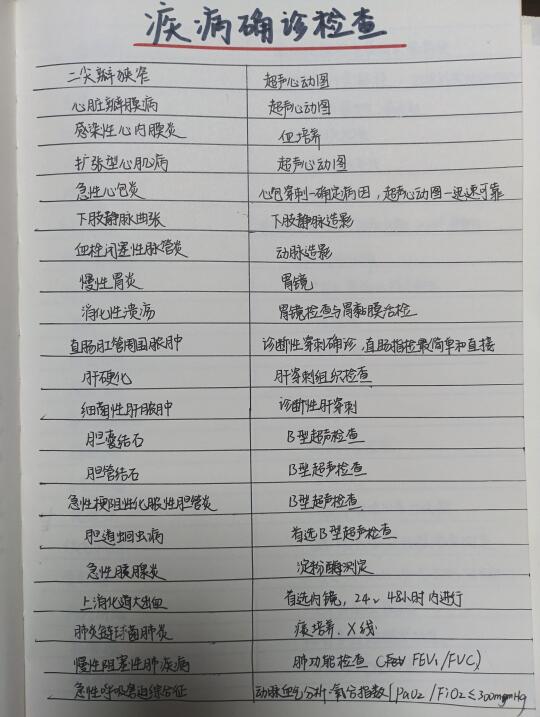 疾病确诊检查
二尖瓣狭窄 超声心动图
心脏瓣膜病 超声心动图
感染性心内膜炎 血培养
扩张型心肌病 超声心动图
急性心包炎 心包穿刺-确定病因，超声心动图-迅速可靠
下肢静脉曲张 下肢静脉造影
血栓闭塞性脉管炎 动脉造影
慢性胃炎 胃镜
消化性溃疡 胃镜检查与胃黏膜活检
直肠肛管周围脓肿 诊断性穿刺确诊，直肠指检最简单和直接
肝硬化 肝穿刺组织检查
细菌性肝脓肿 诊断性肝穿刺
胆囊结石 B型超声检查
胆管结石 B型超声检查
急性梗阻性化脓性胆管炎 B型超声检查
胆道蛔虫病 首选B型超声检查
急性胰腺炎 淀粉酶测定
上消化道大出血 首选内镜，24~48小时内进行
肺炎链球菌肺炎 痰培养、X线
慢性阻塞性肺疾病 肺功能检查（FEV₁/FVC）
急性呼吸窘迫综合征 动脉血气分析·氧合指数（PaO₂/FiO₂≤300mmHg